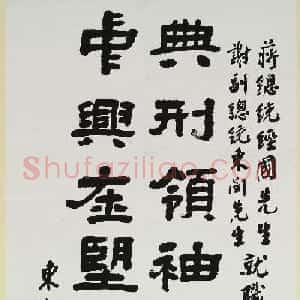 蔣總統經國先生就職
謝副總統東閔先生
典刑領袖
中興在望
東
Shufaziliao.com